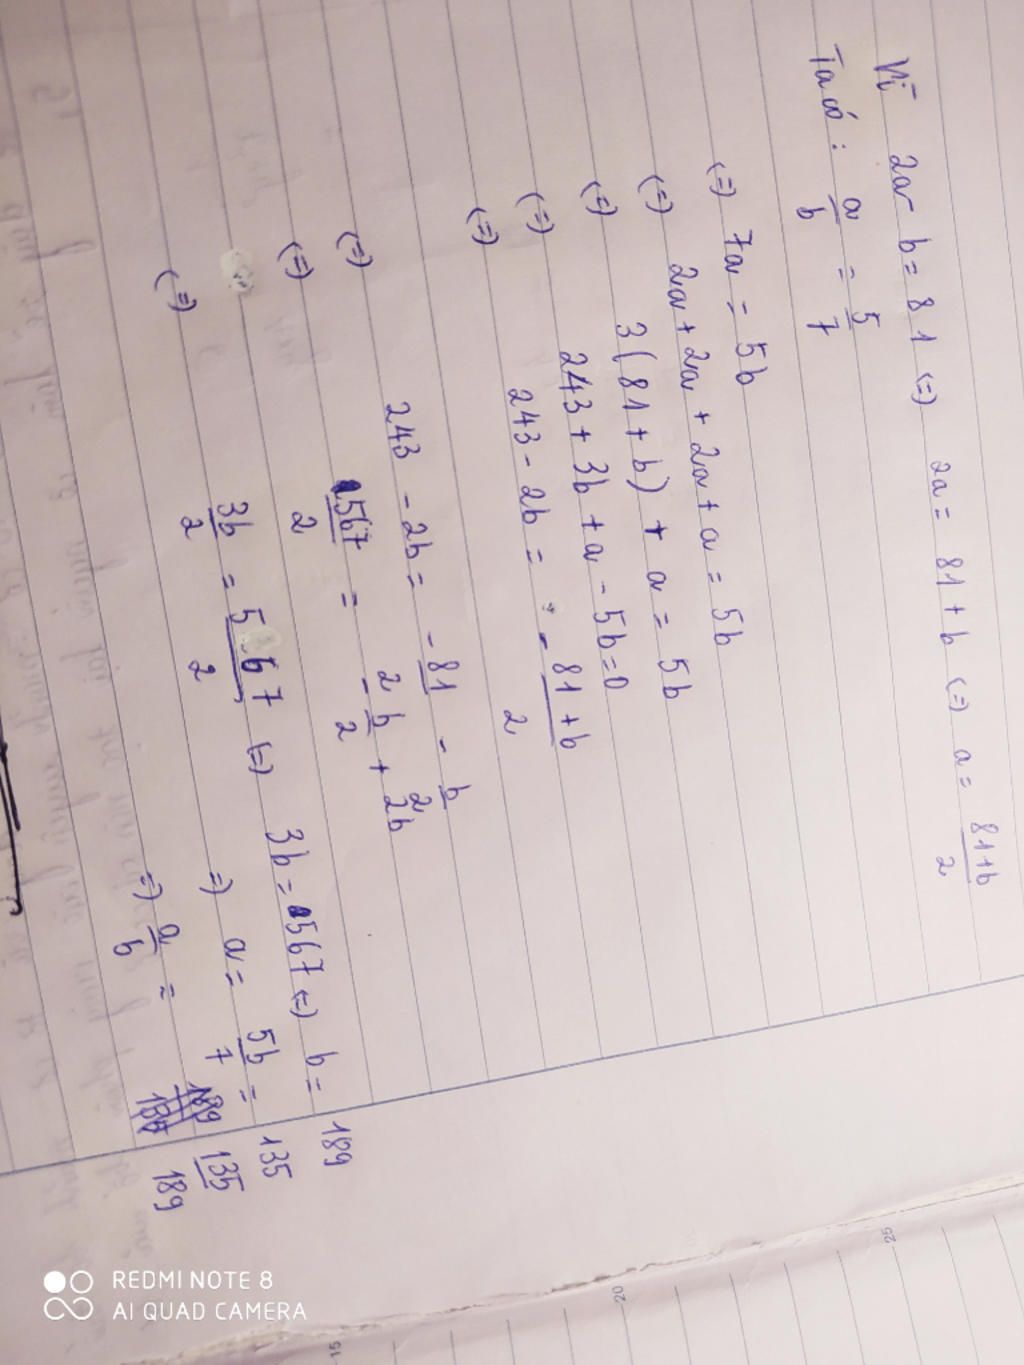 Vì 2a - b = 81 (=) 2a = 81 + b (=) a = 81+b / 2
Ta có : a/b = 5/7
(=) 7a = 5b
(=) 2a + 2a + 2a + a = 5b
(=) 3(81 + b) + a = 5b
(=) 243 + 3b + a - 5b = 0
(=) 243 - 2b = - 81+b / 2
(=) 243 - 2b = - 81/2 - b/2
(=) 567/2 = - b/2 + 2b
(=) 3b/2 = 567/2 (=) 3b = 567 (=) b = 189
=) a = 5b/7 = 135
=) a/b = 135/189
REDMI NOTE 8
AI QUAD CAMERA
15
20
25